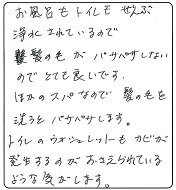 お風呂もトイレも ぜんぶ
浄水されているので
髪の毛が パサパサしない
のでとても良いです。
ほかのスパなので 髪の毛を
洗うとパサパサします。
トイレのウォシュレットも カビが
発生するのが おさえられている
ような気がします。